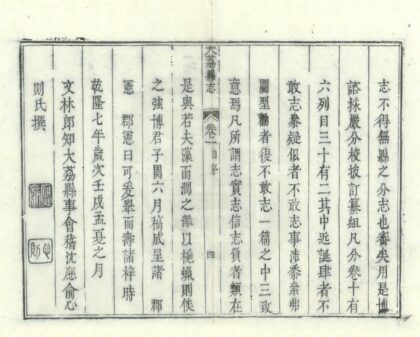 志不得無縣之分志也審矣用是博
諮採嚴分校披訂纂組凡分卷十有
六列目三十有二其中近誕肆者不
敢志參疑似者不敢志事浩黍絫弗
關型勸者復不敢志一篇之中三致
意焉凡所謂志實志信志質者類在
大荔縣志
卷一
自序
四
是與若夫藻而潤之鞶以梔蠟則俟
之強博君子閱六月稿成呈諸 郡
憲 郡憲曰可爰舉而壽諸梓時
乾隆七年歲次壬戌孟夏之月
文林郎知大荔縣事會稽沈應俞心
則氏撰